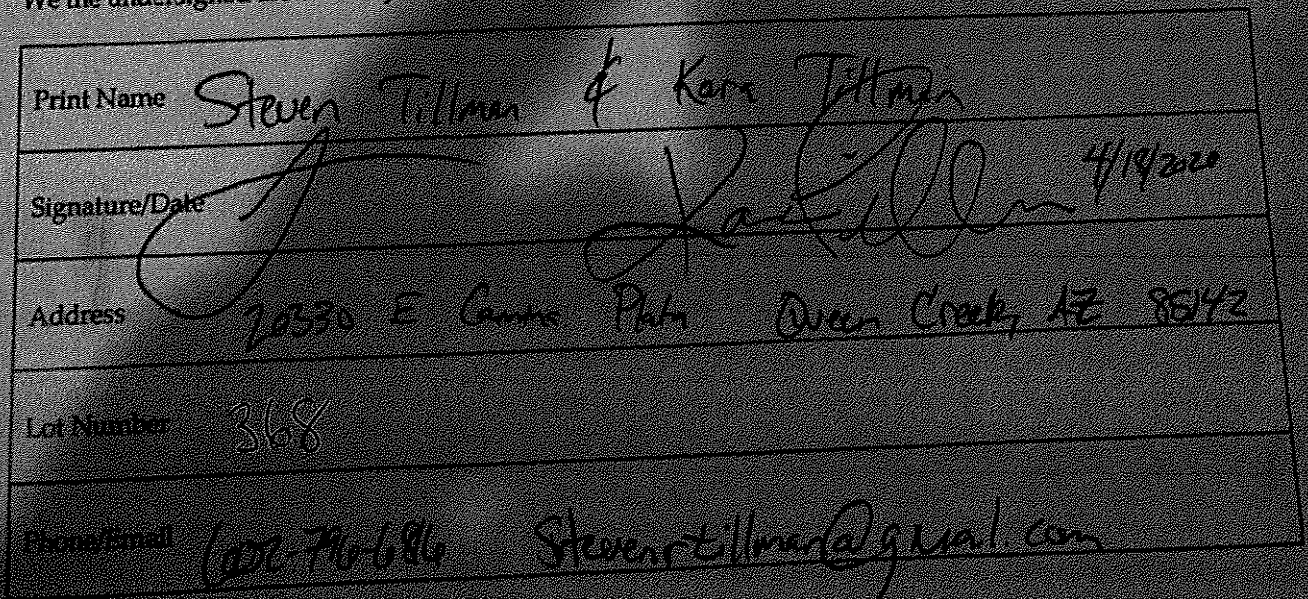 We the undersigned
Print Name Steven Tillman & Kara Tillman
Signature/Date 4/18/2020
Address 20330 E Camina Plata Queen Creek, AZ 85142
Lot Number 368
Phone/Email Stevenrtillman@gmail.com